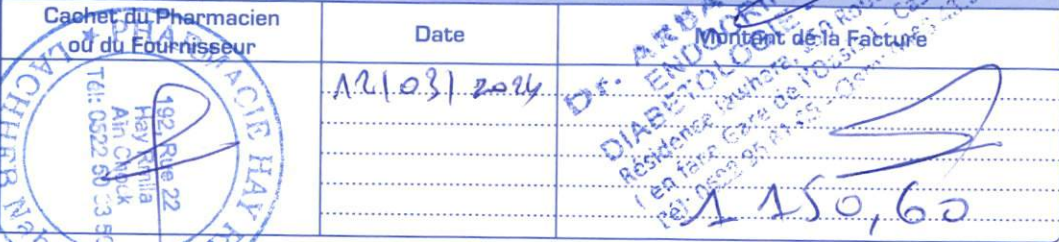 Cachet du Pharmacien
ou du Fournisseur
Date
Montant de la Facture
PHARMACIE HAY
LACHHEB
192, Rue 22
Hay Rmila
Aïn Chock
Tél: 0522 50
12/03/2024
Dr.
DIABETOLOGIE
Résidence
( en face Gare de l'Oasis
1 150,60